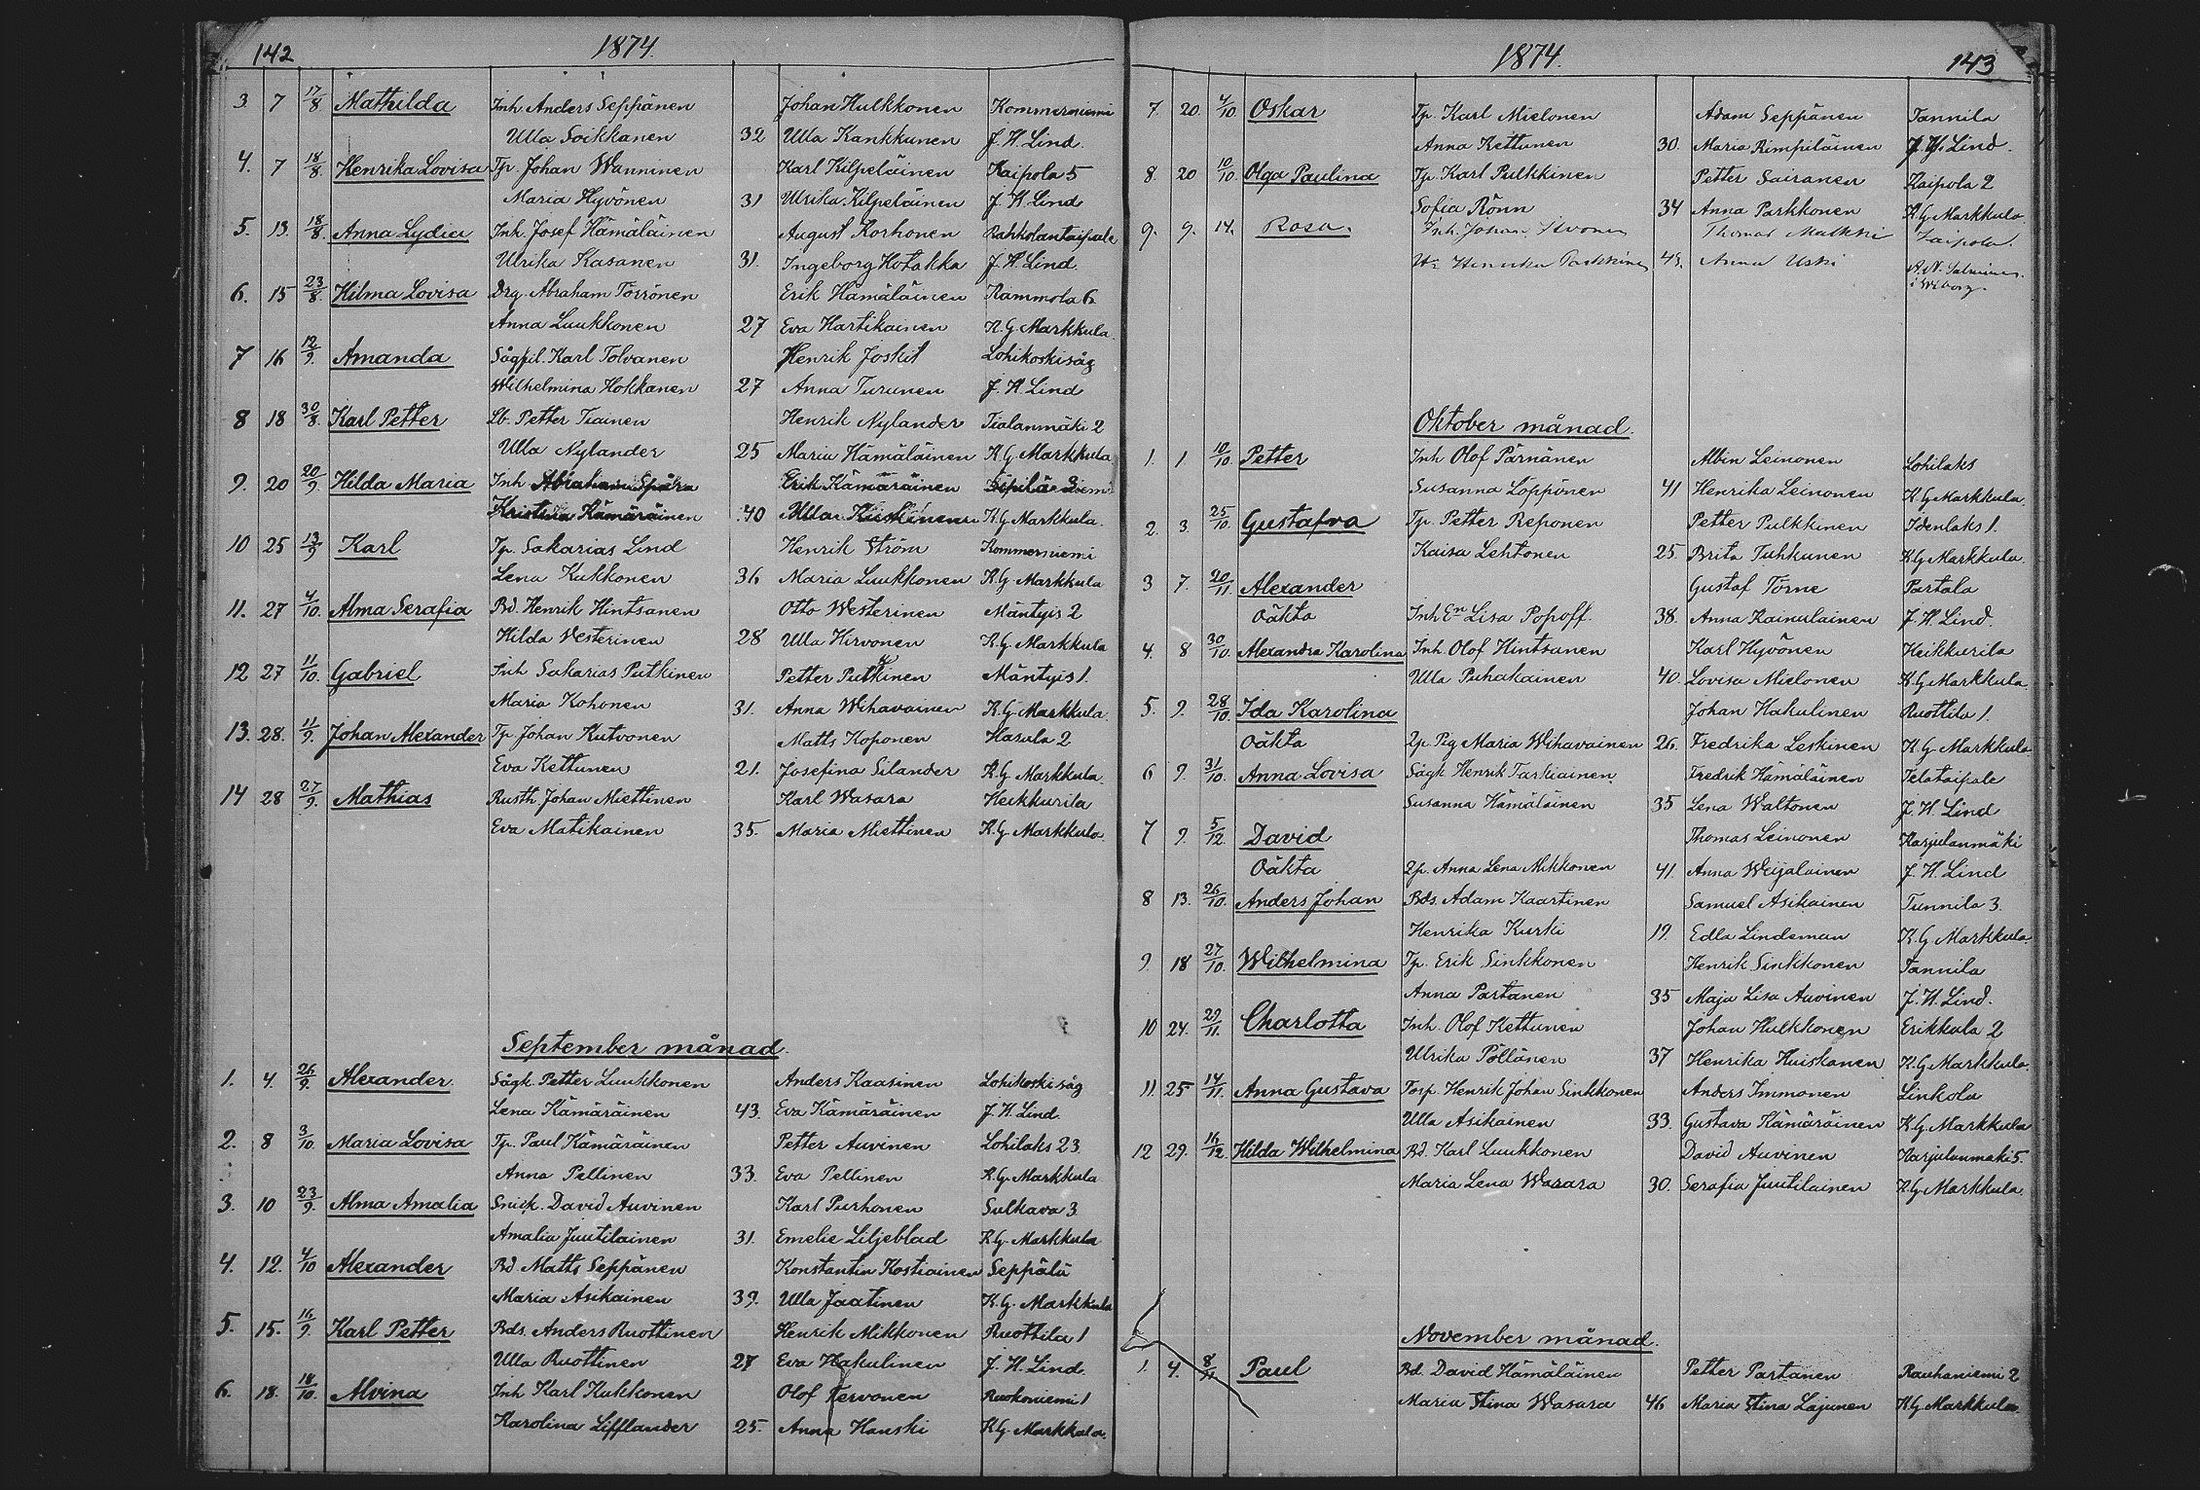 142
1874.
3 7 17/8 Mathilda Inh Anders Seppänen Johan Hulkkonen Kommerniemi
Ulla Soikkanen 32 Ulla Kankkunen J. H. Lind.
4. 7 18/8 Henrika Lovisa Tp. Johan Wanninen Karl Kilpeläinen Kaipola 5
Maria Hyvönen 31 Ulrika Kilpeläinen J. H. Lind
5. 13. 18/8. Anna Lydia Inh. Josef Hämäläinen August Korhonen Rahkolantaipale
Ulrika Kasanen 31. Ingeborg Hotakka J. H. Lind.
6. 15 23/8. Hilma Lovisa Drg. Abraham Törrönen Erik Hämäläinen Rammola 6
Anna Luukkonen 27 Eva Hartikainen K. G Markkula.
7 16 12/9. Amanda Sågfil. Karl Tolvanen Henrik Joskit Lohikoski såg
Wilhelmina Hokkanen 27 Anna Turunen J. H. Lind
8 18 30/8. Karl Petter Lb. Petter Tiainen Henrik Nylander Tialanmäki 2
Ulla Nylander 25 Maria Hämäläinen K. G Markkula
9. 20 20/9. Hilda Maria Inh Abraham Erik Kämäräinen
Kristina Kämäräinen 40 Ulla K. G Markkula.
10 25 13/9 Karl Tp. Sakarias Lind Henrik Ström Kommerniemi
Lena Kukkonen 36 Maria Luukkonen K. G Markkula
11. 27 4/10. Alma Serafia Bd. Henrik Hintsanen Otto Westerinen Mäntyis 2
Hilda Westerinen 28 Ulla Hirvonen K. G Markkula
12 27 11/10. Gabriel Inh Sakarias Putkinen Petter Putkinen Mäntyis 1.
Maria Kohonen 31. Anna Wihavainen K. G Markkula.
13. 28. 11/9. Johan Alexander Tp. Johan Kutvonen Matts Koponen Hasula 2
Eva Kettunen 21. Josefina Silander K. G Markkula.
14 28 27/9. Mathias Rusth Johan Miettinen Karl Wasara Heikkurila
Eva Matikainen 35. Maria Miettinen K. G. Markkula.
September månad.
1. 4. 26/9. Alexander. Sågk. Petter Luukkonen Anders Kaasinen Lohikoski såg
Lena Kämäräinen 43. Eva Kämäräinen J. H. Lind.
2. 8 3/10. Maria Lovisa Tp. Paul Kämäräinen Petter Auvinen Lohilaks 23.
Anna Pellinen 33. Eva Pellinen K. G. Markkula
3. 10 23/9. Alma Amalia Snick. David Auvinen Karl Purhonen Sulkava 3
Amalia Juutilainen 31. Emelie Liljeblad K. G. Markkula
4. 12. 4/10 Alexander Bd Matts Seppänen Konstantin Kostiainen Seppälä
Maria Asikainen 39. Ulla Jaatinen K. G. Markkula
5. 15. 16/9. Karl Petter Bds. Anders Ruottinen Henrik Mikkonen Ruottila 1
Ulla Ruottinen 27 Eva Hakulinen J. H. Lind.
6. 18. 18/10. Alvina Inh Karl Kukkonen Olof Tervonen Ruokoniemi 1
Karolina Lifflander 25. Anna Hanski K. G. Markkula.
1874.
143
7. 20. 4/10. Oskar Tp. Karl Mielonen Adam Seppänen Tannila
Anna Kettunen 30. Maria Rimpiläinen J. H. Lind.
8. 20 10/10. Olga Paulina Tp. Karl Pulkkinen Petter Sairanen Kaipola 2
Sofia Rönn 34 Anna Parkkonen K. G Markkula
9. 9. 14. Rosa. Inh. Johan Thomas Malkki Kaipola.
Henrika Parkkinen 43. Anna Uski
i Wiborg.
Oktober månad.
1. 1 10/10. Petter Inh Olof Pärnänen Albin Leinonen Lohilaks
Susanna Löppönen 41 Henrika Leinonen K. G Markkula.
2. 3. 25/10. Gustafva Tp. Petter Reponen Petter Pulkkinen Idenlaks 1.
Kaisa Lehtonen 25. Brita Tuhkunen K. G Markkula.
3 7. 20/11. Alexander Gustaf Törne Partala
Oäkta Inh En Lisa Popoff. 38. Anna Kainulainen J. H. Lind.
4. 8 30/10. Alexandra Karolina Inh. Olof Hintsanen Karl Hyvönen Heikkurila
Ulla Puhakainen 40. Lovisa Mielonen K. G Markkula.
5. 9. 28/10. Ida Karolina Johan Hakulinen Ruottila 1.
Oäkta Lp. Pig Maria Wihavainen 26. Fredrika Leskinen K. G Markkula
6 9. 31/10. Anna Lovisa Sågk Henrik Tarkiainen Fredrik Hämäläinen Telataipale
Susanna Hämäläinen 35 Lena Waltonen J. H. Lind
7 9. 5/12. David Thomas Leinonen Karjulanmäki
Oäkta Lp. Anna Lena Mikkonen 41. Anna Weijalainen J. H. Lind
8 13. 26/10. Anders Johan Bds. Adam Kaartinen Samuel Asikainen Tunnila 3.
Henrika Kurki 19. Edla Lindeman K. G Markkula.
9. 18 27/10. Wilhelmina Tp. Erik Sinkkonen Henrik Sinkkonen Tannila
Anna Partanen 35 Maja Lisa Auvinen J. H. Lind.
10 24. 29/11. Charlotta Inh. Olof Kettunen Johan Hulkkonen Erikkala 2
Ulrika Pöllänen 37 Henrika Huiskanen K. G Markkula.
11. 25 14/11. Anna Gustava Torp. Henrik Johan Sinkkonen Anders Immonen Linkola
Ulla Asikainen 33. Gustava Kämäräinen K. G Markkula
12 29. 16/12. Hilda Wilhelmina Bd. Karl Luukkonen David Auvinen Karjulanmäki 5.
Maria Lena Wasara 30. Serafia Juutilainen K. G Markkula.
November månad.
1. 4. 8/11 Paul Bd. David Hämäläinen Petter Partanen Rauhaniemi 2
Maria Stina Wasara 46 Maria Stina Lajunen K. G Markkula.